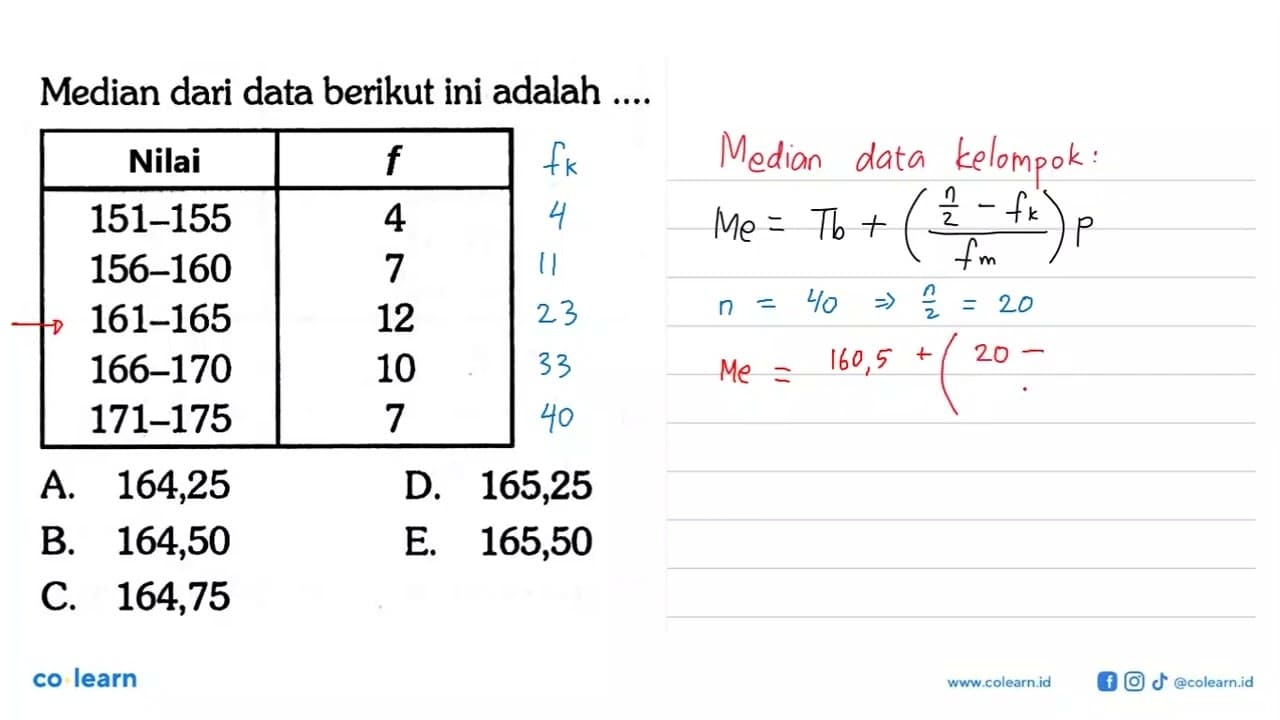 Median dari data berikut ini adalah ....
Nilai f fk
151–155 4 4
156–160 7 11
161–165 12 23
166–170 10 33
171–175 7 40
A. 164,25 D. 165,25
B. 164,50 E. 165,50
C. 164,75
Median data kelompok:
Me = Tb + ( (n/2 - fk) / fm ) p
n = 40 ⇒ n/2 = 20
Me = 160,5 + ( 20 -
co learn
www.colearn.id @colearn.id